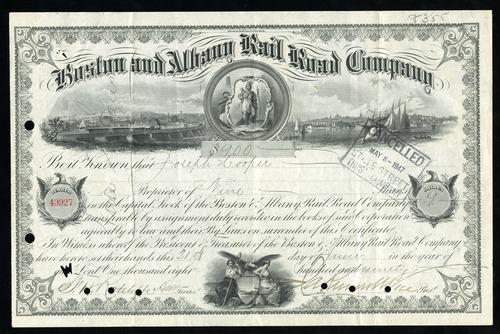 8355
Boston and Albany Rail Road Company
$900
CANCELLED
MAY 8-1947
STATE STREET
Be it Known that Joseph Cooper
is Proprietor of Nine Shares
43927
9
in the Capital Stock of the Boston & Albany Rail Road Company
transferable by assignment duly recorded in the books of said Corporation
agreeably to Law and their By Laws on surrender of this Certificate.
In Witness whereof the President & Treasurer of the Boston & Albany Rail Road Company
have hereunto set their hands this 21st day of June in the year of
our Lord One thousand eight hundred and ninety
Treas. Prest.